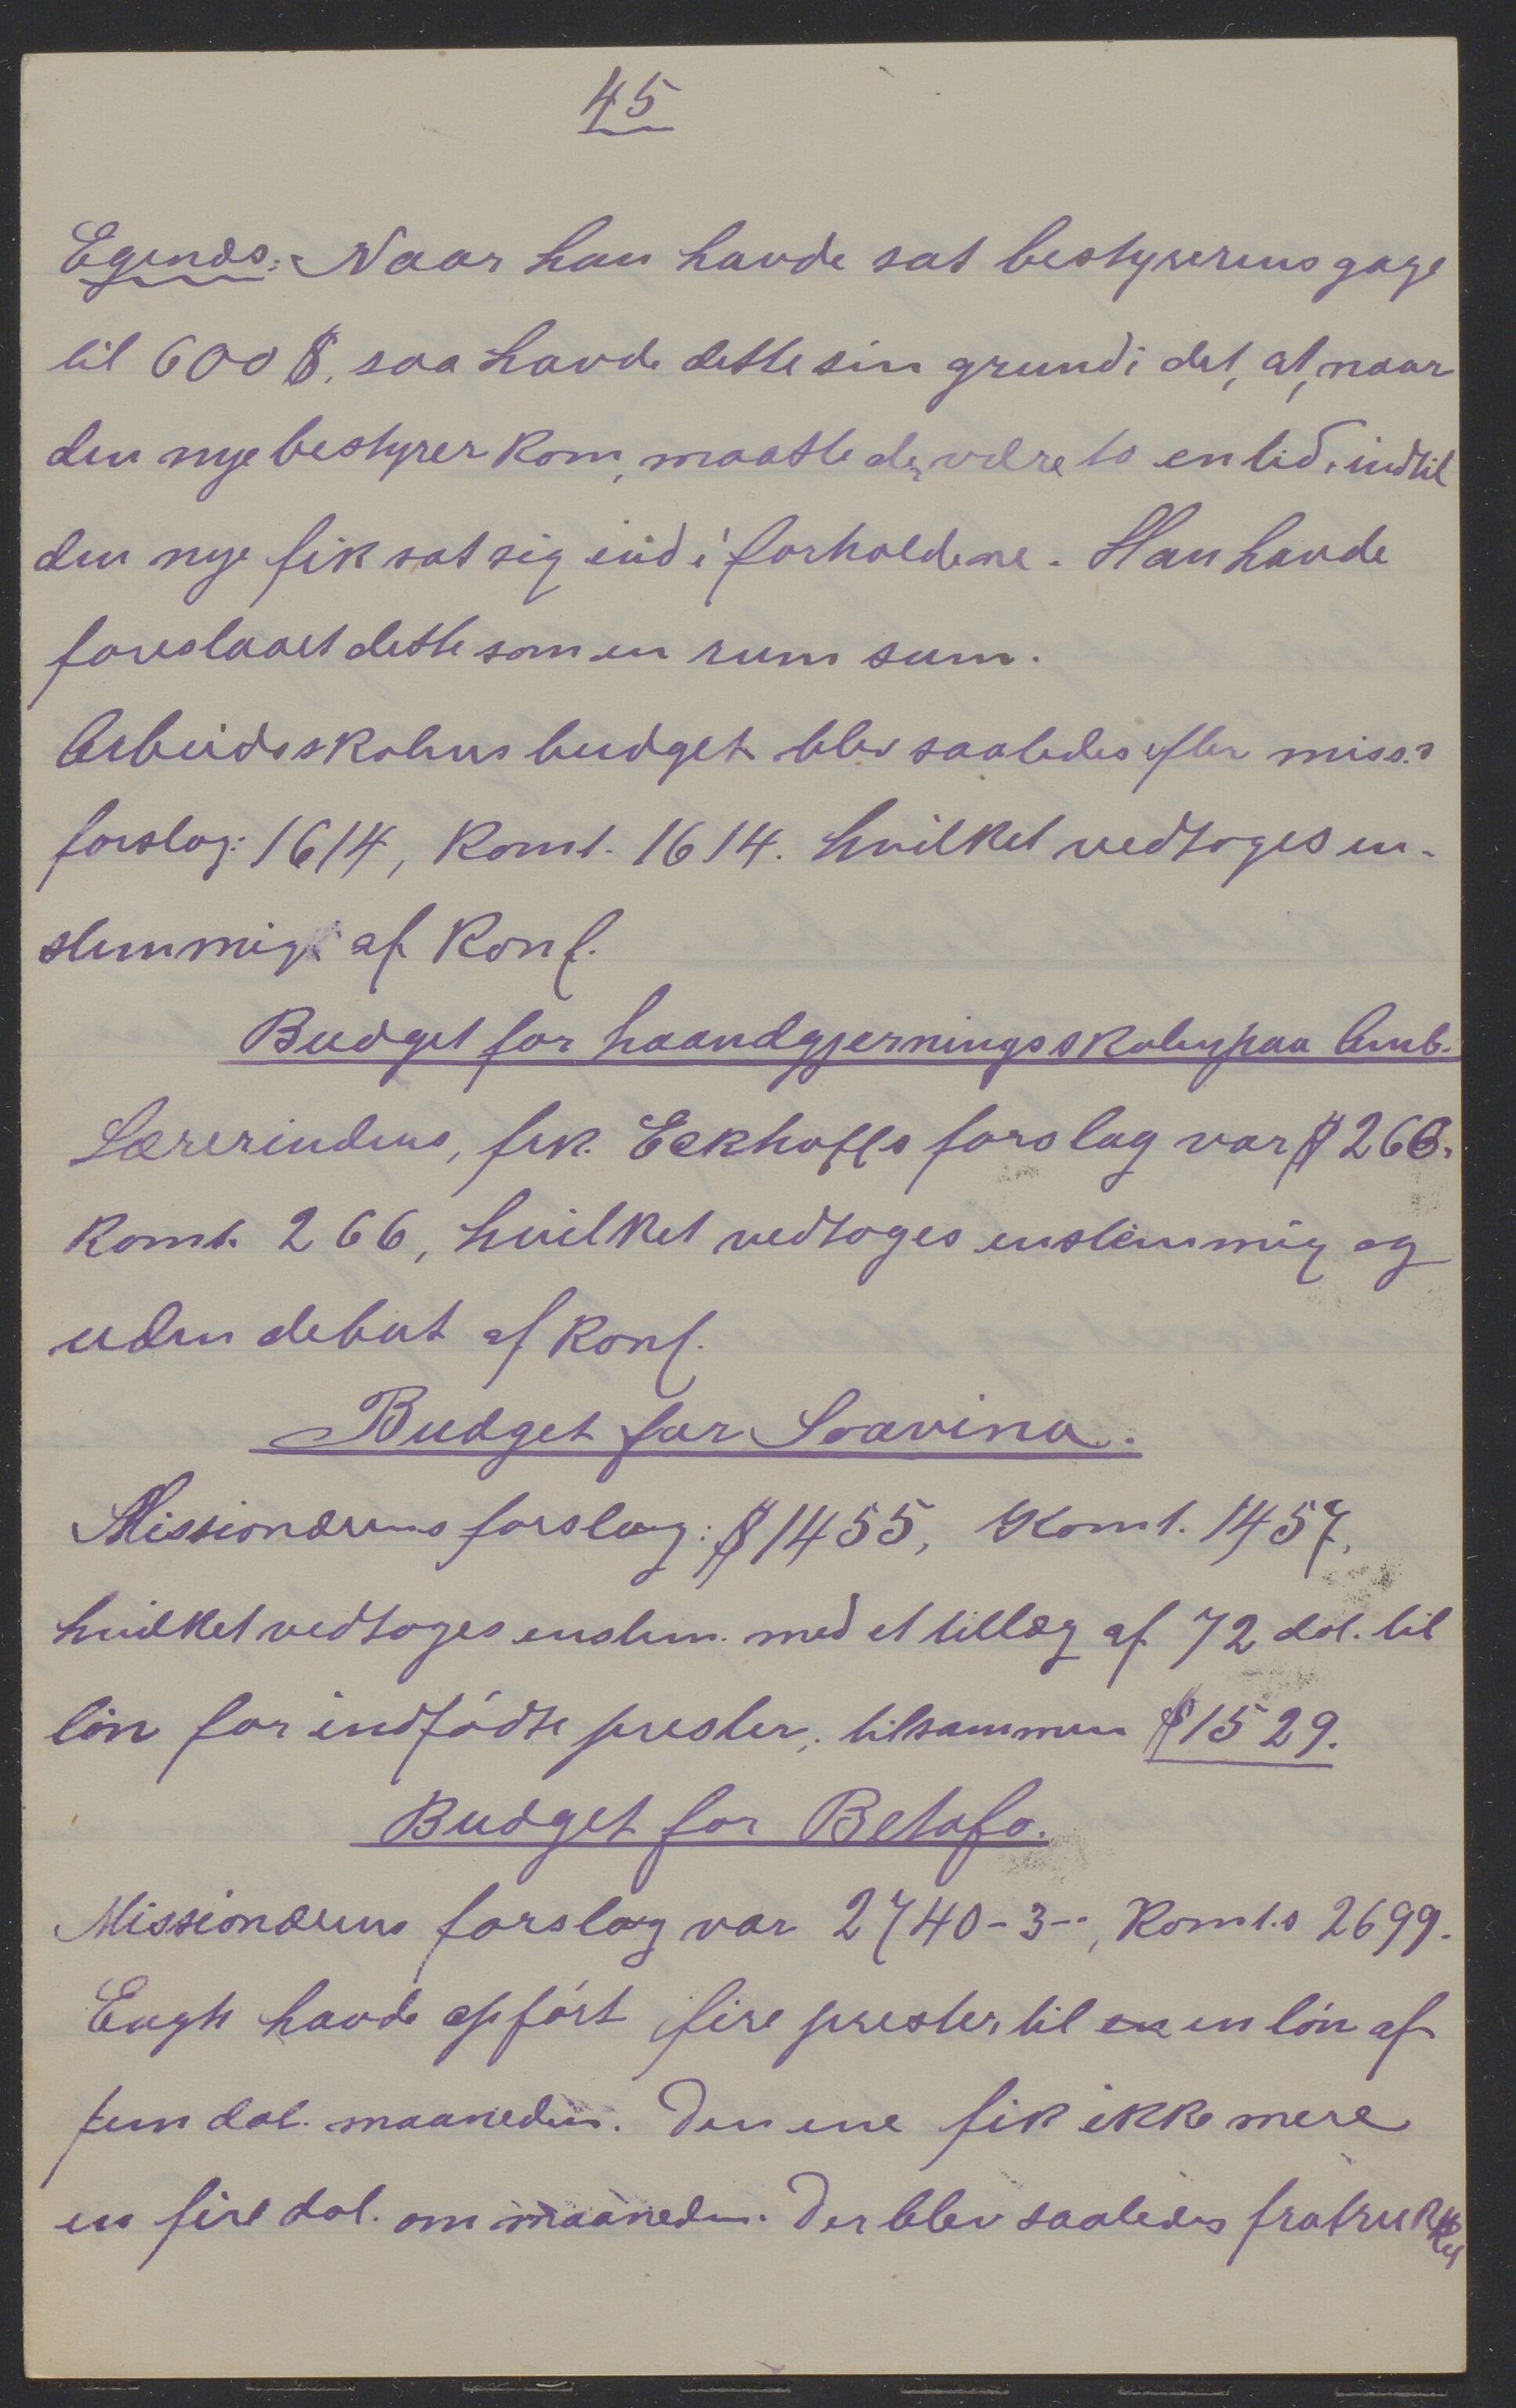 45
Egenæs: Naar han havde sat bestyrerens gage
til 600 $, saa havde dette sin grund i det, at, naar
den nye bestyrer kom, maatte der være to en tid, indtil
den nye fik sat sig ind i forholdene. Han havde
foreslaaet dette som en rum sum.
Arbeidsskolens budget blev saaledes efter miss.s
forslag: 1614, Komt. 1614. hvilket vedtoges en-
stemmig af Konf.
Budget for haandgjerningsskolen paa Amb.
Lærerindens, frk. Eckhoffs forslag var $ 266.
Komt. 266, hvilket vedtoges enstemmig og
uden debat af Konf.
Budget for Soavina.
Missionærens forslag: $ 1455, Komt. 1457,
hvilket vedtoges enstem. med et tillæg af 72 dol. til
løn for indfødte prester, tilsammen $ 1529.
Budget for Betafo.
Missionærens forslag var 2740-3-, Komt.s 2699.
Engh havde opført fire prester til en en løn af
fem dol. maaneden. Den ene fik ikke mere
en fire dol. om maaneden. Der blev saaledes fratrukket